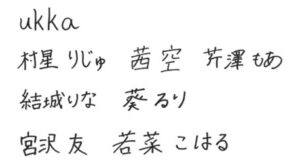 ukka
村星りじゅ 茜空 芹澤もあ
結城りな 葵るり
宮沢友 若菜こはる